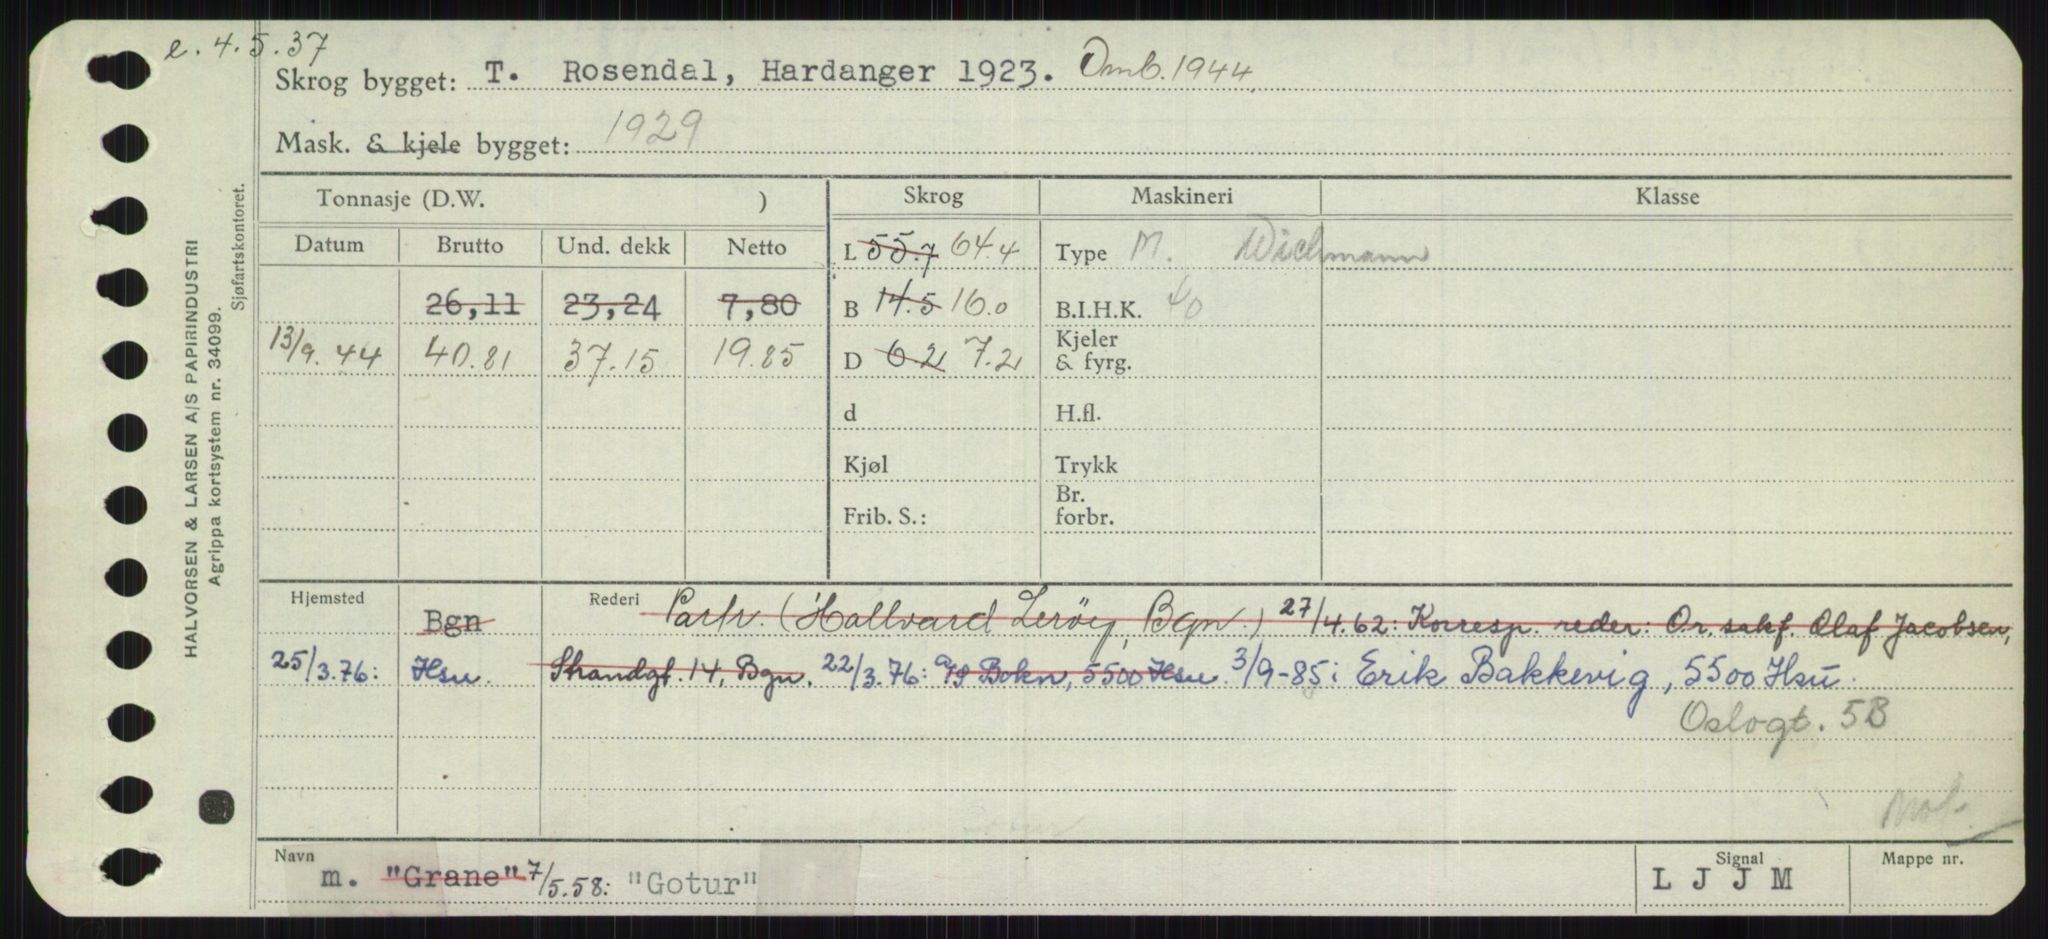 e. 4.5.37
Skrog bygget: T. Rosendal, Hardanger 1923. Omb. 1944.
Mask. & kjele bygget: 1929
Tonnasje (D.W. ) Skrog Maskineri Klasse
Datum Brutto Und. dekk Netto L 55.7 64.4 Type M. Wichmann
26,11 23,24 7,80 B 14.5 16.0 B.I.H.K. 40
13/9. 44 40.81 37.15 19.85 D 6.2 7.2 Kjeler & fyrg.
d H.fl.
Kjøl Trykk
Frib. S.: Br. forbr.
Hjemsted Bgn Rederi Partr. (Hallvard Lerøy, Bgn.) 27/4.62: Korresp. reder: Or. sakf. Olaf Jacobsen,
25/3.76: Hsu. Strandgt. 14, Bgn. 22/3.76: Bokn, 5500 Hsu. 3/9-85: Erik Bakkevig, 5500 Hsu.
Oslogt. 5B
Navn m. "Grane" 7/5.58: "Gotur" Signal L J J M Mappe nr.
HALVORSEN & LARSEN A/S PAPIRINDUSTRI
Agrippa kortsystem nr. 34099.
Sjøfartskontoret.